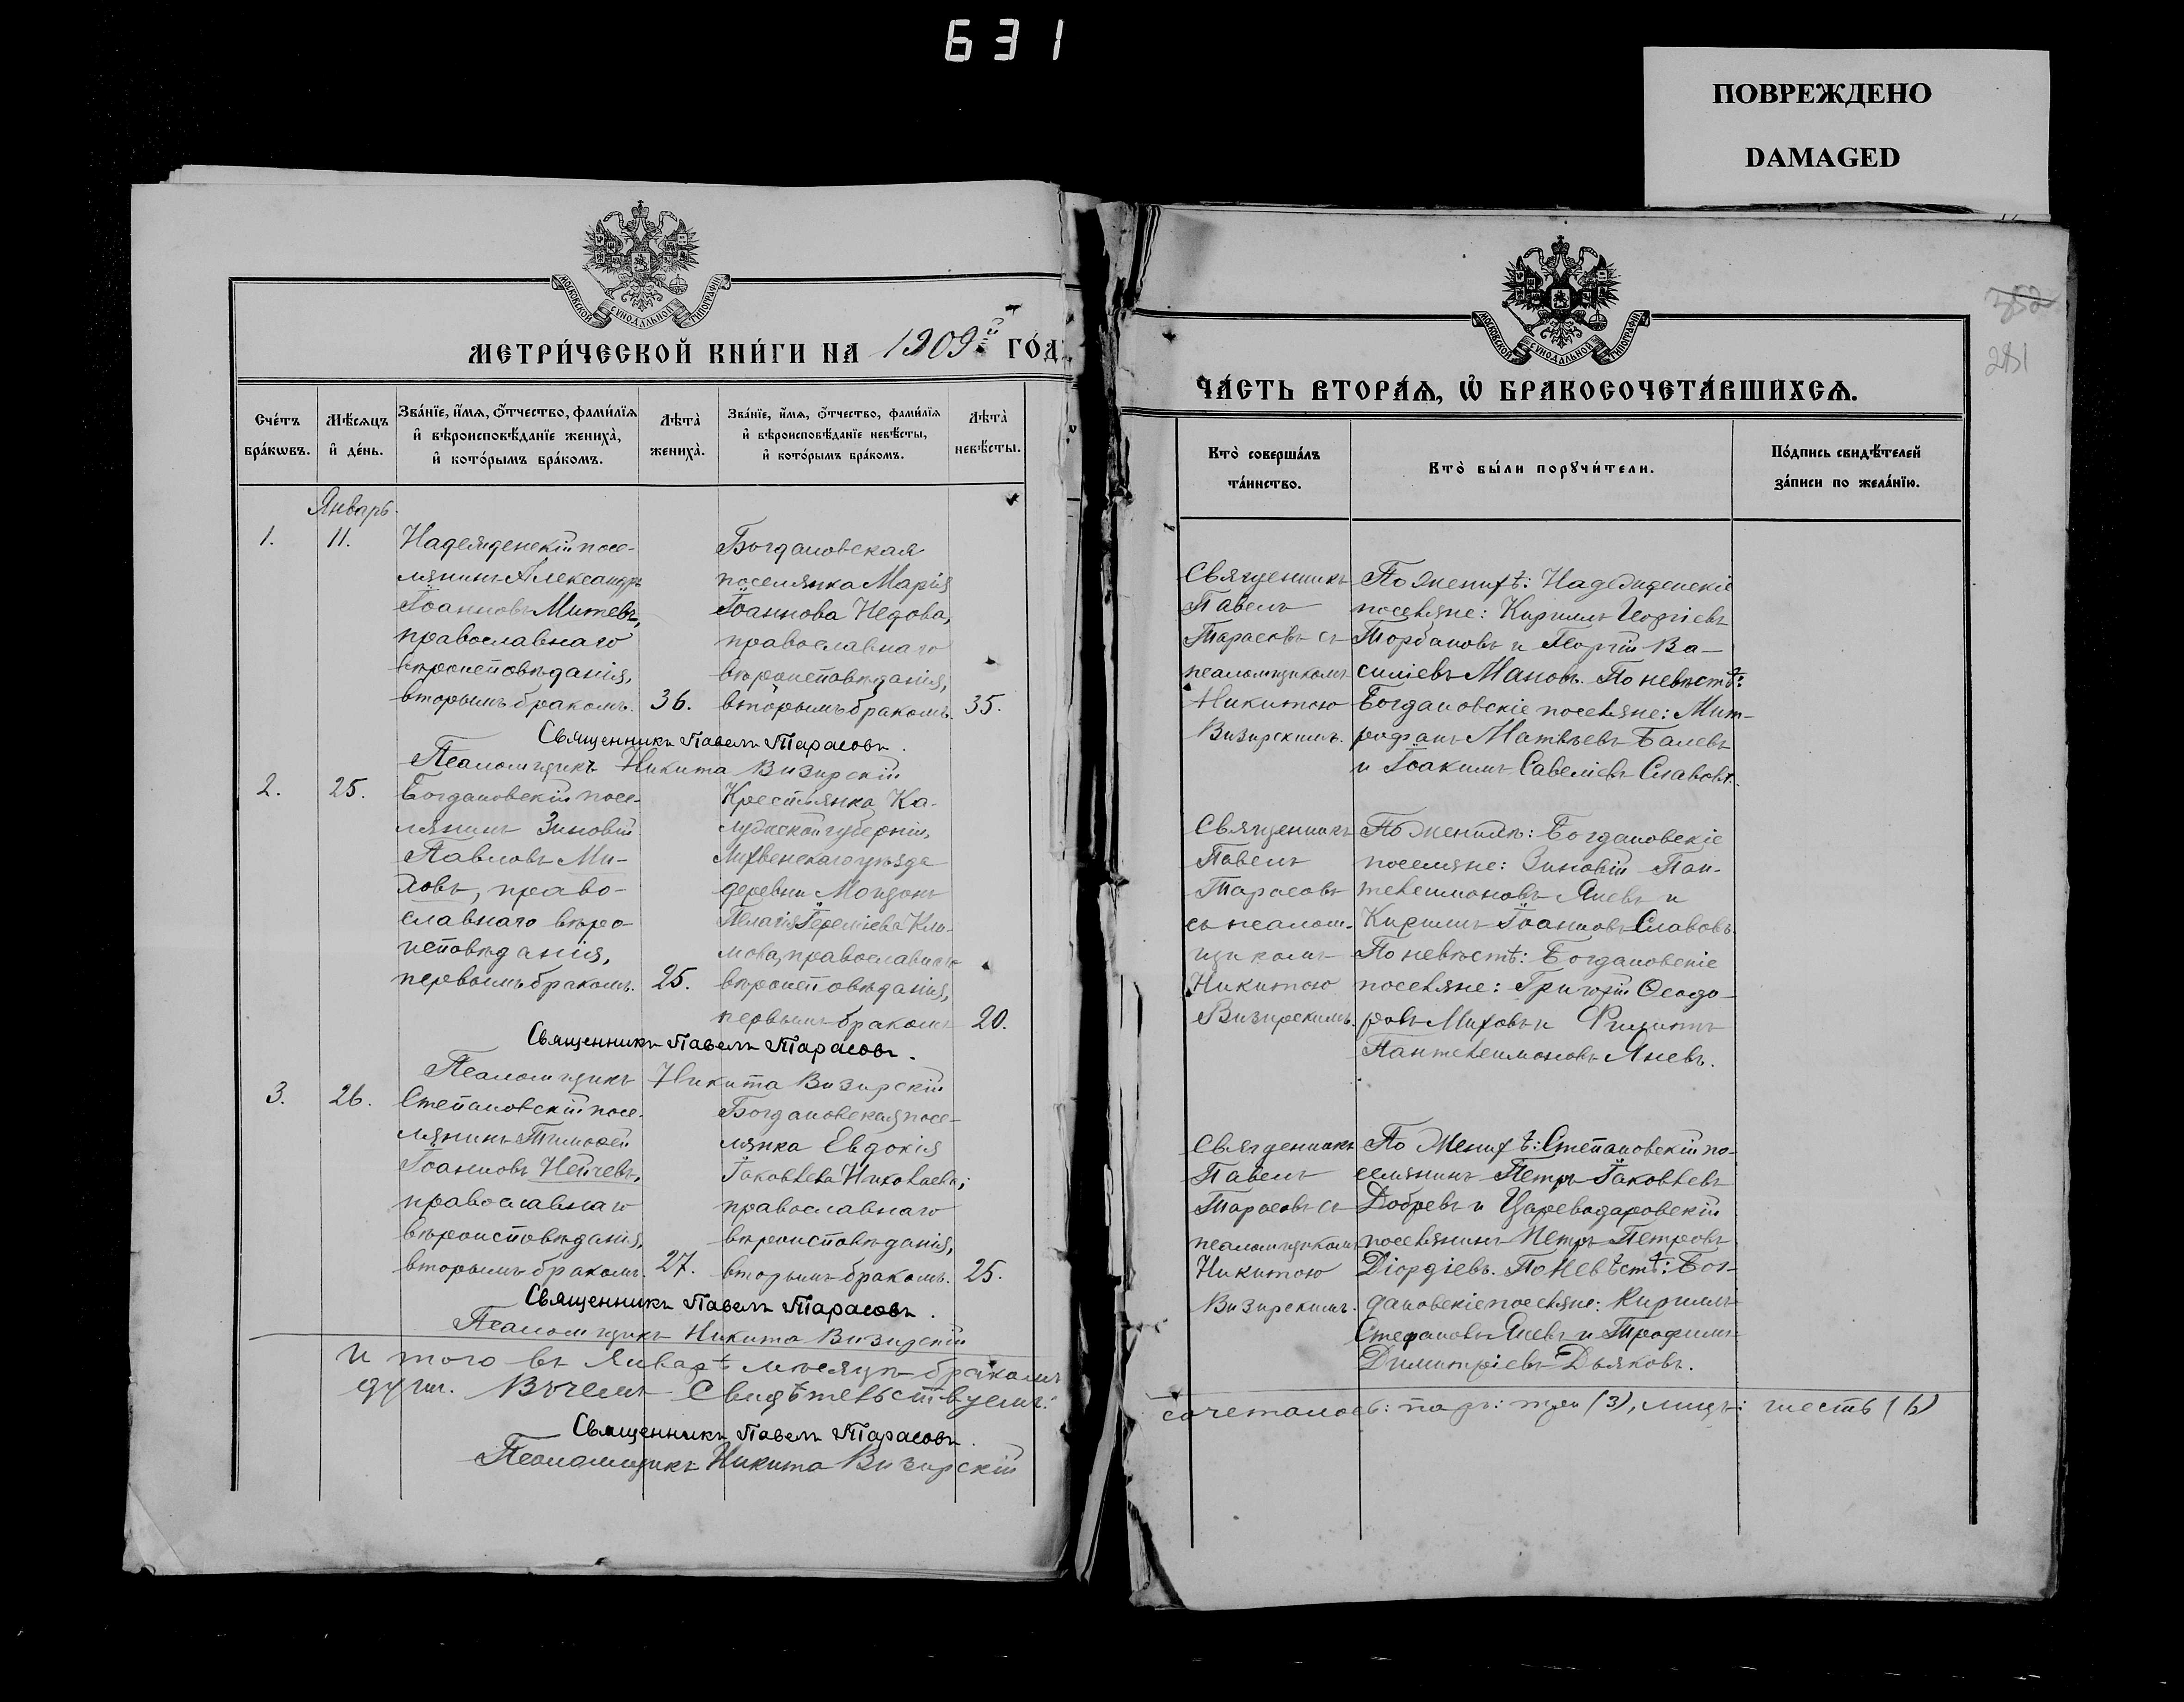 631
ПОВРЕЖДЕНО
DAMAGED
МОСКОВСКОЙ СѴНОДАЛЬНОЙ ТИПОГРАФІИ
МЕТРИ́ЧЕСКОЙ КНИ́ГИ НА 1909й ГО́Д
Сче́тъ бра́кωвъ.
Мѣ́сяцъ и҆ де́нь.
Зва́нїе, и҆́мѧ, ѻ҆́тчество, фами́лїѧ
и҆ вѣроисповѣ́данїе жениха̀,
и҆ кото́рымъ бра́комъ.
Лѣта̀ жениха̀.
Зва́нїе, и҆́мѧ, ѻ҆́тчество, фами́лїѧ
и҆ вѣроисповѣ́данїе невѣ́сты,
и҆ кото́рымъ бра́комъ.
Лѣта̀ невѣ́сты.
Январь.
1.
11.
Надежденскій посе-
лянинъ Александръ
Іоанновъ Митевъ,
православнаго
вѣроисповѣданія,
вторымъ бракомъ.
36.
Богдановская
поселянка Марія
Іоаннова Недова,
православнаго
вѣроисповѣданія,
вторымъ бракомъ.
35.
Священникъ Павелъ Тарасовъ.
Псаломщикъ Никита Визирскій
2.
25.
Богдановскій посе-
лянинъ Зиновій
Павловъ Ми-
ховъ, право-
славнаго вѣро-
исповѣданія,
первымъ бракомъ.
25.
Крестьянка Ка-
лужской губерніи,
Лихвенскаго уѣзда
деревни
Пелагія Іереміева Кли-
мова, православнаго
вѣроисповѣданія,
первымъ бракомъ
20.
Священникъ Павелъ Тарасовъ.
Псаломщикъ Никита Визирскій
3.
26.
Степановскій посе-
лянинъ Тимофей
Іоанновъ Нейчевъ,
православнаго
вѣроисповѣданія,
вторымъ бракомъ.
27.
Богдановская посе-
лянка Евдокія
Іаковлева Николаева,
православнаго
вѣроисповѣданія,
вторымъ бракомъ.
25.
Священникъ Павелъ Тарасовъ.
Псаломщикъ Никита Визирскій
И того въ Январѣ мѣсяцѣ бракомъ
Въ чемъ Свидѣтельствуемъ:
Священникъ Павелъ Тарасовъ.
Псаломщикъ Никита Визирскій
352
281
МОСКОВСКОЙ СѴНОДАЛЬНОЙ ТИПОГРАФІИ
ЧА́СТЬ ВТОРА́Ѧ, Ѽ БРАКОСОЧЕТА́ВШИХСѦ.
Кто̀ соверша́лъ
та́инство.
Кто̀ бы́ли порꙋчи́тели.
По́дпись свидѣ́телей
за́писи по жела́нїю.
Священникъ
Павелъ
Тарасовъ съ
псаломщикомъ
Никитою
Визирскимъ.
По женихѣ: Надежденскіе
поселяне: Кириллъ Георгіевъ
Торбановъ и Георгій Ва-
силіевъ Мановъ. По невѣстѣ:
Богдановскіе поселяне: Мит-
рофанъ Матвѣевъ Балевъ
и Іоакимъ Савеліевъ Славовъ.
Священникъ
Павелъ
Тарасовъ
съ псалом-
щикомъ
Никитою
Визирскимъ.
По женихѣ: Богдановскіе
поселяне: Зиновій Пан-
телеимоновъ Яневъ и
Кириллъ Іоанновъ Славовъ.
По невѣстѣ: Богдановскіе
поселяне: Григорій Ѳеодо-
ровъ Миховъ и Филиппъ
Пантелеимоновъ Яневъ.
Священникъ
Павелъ
Тарасовъ съ
псаломщикомъ
Никитою
Визирскимъ.
По женихѣ: Степановскій по-
селянинъ Петръ Іаковлевъ
Добревъ и Цареводаровскій
поселянинъ Петръ Петровъ
Діордіевъ. По невѣстѣ: Бог-
дановскіе поселяне: Кириллъ
Стефановъ Яневъ и Трофимъ
Димитріевъ Дьяковъ.
сочеталось: паръ: три (3), лицъ: шесть (6)